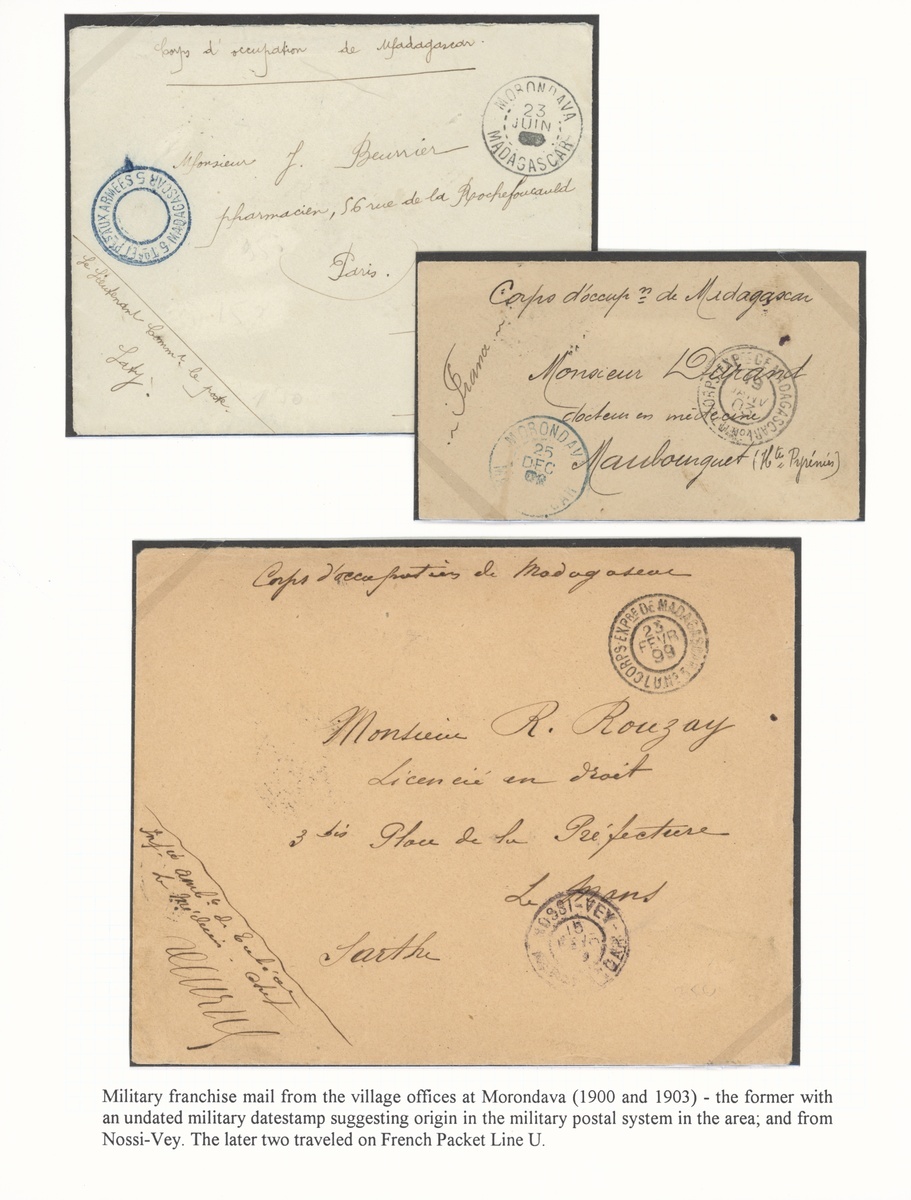 Corps d'occupation de Madagascar.
MORONDAVA
23
JUIN
MADAGASCAR
Monsieur J. Beurrier
pharmacien, 56 rue de la Rochefoucauld
Paris.
TOR ET P. AUX ARMÉES
MADAGASCAR 5
Le Lieutenant Commt le poste
Corps d'occupn de Madagascar
France
Monsieur Durand
docteur en médecine
Maubourguet (Htes Pyrénées)
MORONDAVA
25
DEC
02
Corps d'occupation de Madagascar
CORPS EXPRE DE MADAGASCAR
23
FEVR
99
Monsieur R. Rouzay
Licencié en droit
3 bis Place de la Préfecture
Le Mans
Sarthe
NOSSI-VEY
15
Le Médecin
Military franchise mail from the village offices at Morondava (1900 and 1903) - the former with
an undated military datestamp suggesting origin in the military postal system in the area; and from
Nossi-Vey. The later two traveled on French Packet Line U.